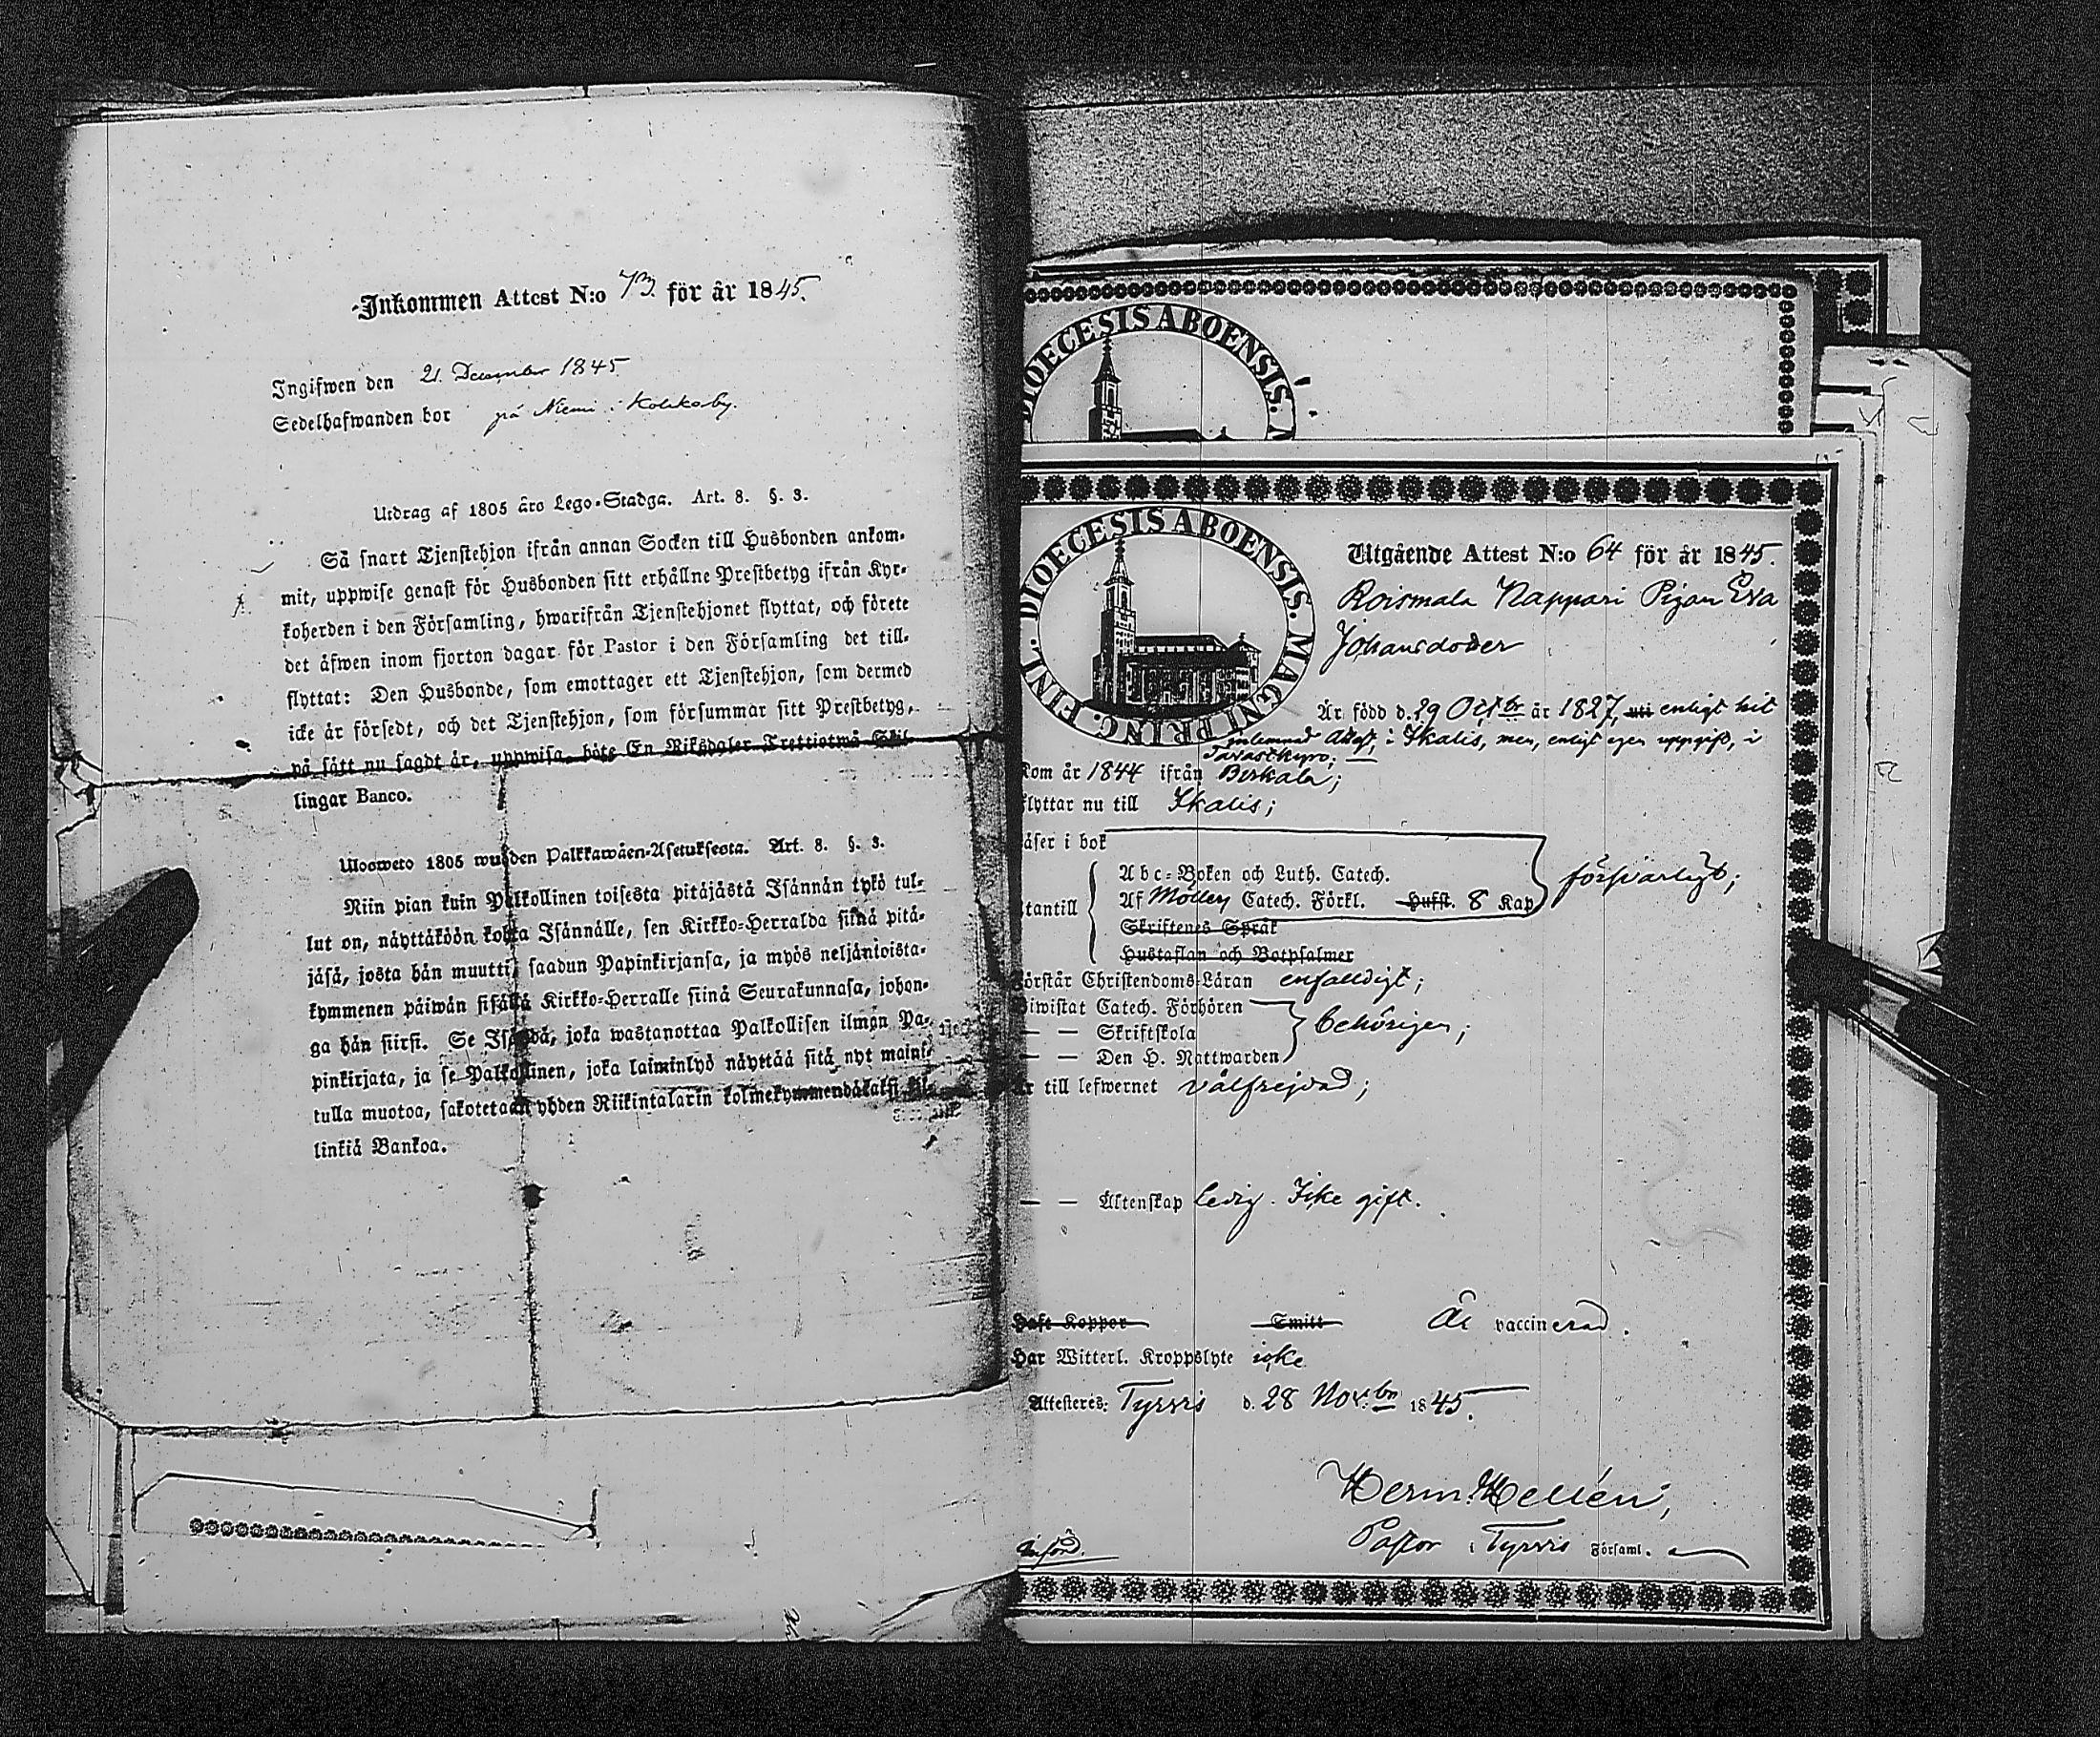 Inkommen Attest N:o 73. för år 1845.
Ingifwen den 21. December 1845
Sedelhafwanden bor på Niemi i Kolkoby.
Utdrag af 1805 års Lego-Stadga. Art. 8. §. 3.
Så snart Tjenstehjon ifrån annan Socken till Husbonden ankom-
mit, uppwise genast för Husbonden sitt erhållne Prestbetyg ifrån Kyr-
koherden i den Församling, hwarifrån Tjenstehjonet flyttat, och förete
det äfwen inom fjorton dagar för Pastor i den Församling det till-
flyttat: Den Husbonde, som emottager ett Tjenstehjon, som dermed
icke är försedt, och det Tjenstehjon, som försummar sitt Prestbetyg,
på sätt nu sagdt är, uppwisa, böte En Riksdaler Trettiotwå Skil-
lingar Banco.
Ulosweto 1805 wuoden Palkkawäen-Asetuksesta. Art. 8. §. 3.
Niin pian kuin Palkollinen toisesta pitäjästä Isännän tykö tul-
lut on, näyttäköön kohta Isännälle, sen Kirkko-Herralda siinä pitä-
jäsä, josta hän muutti, saadun Papinkirjansa, ja myös neljäntoista-
kymmenen päiwän sisällä Kirkko-Herralle siinä Seurakunnasa, johon-
ga hän siirsi. Se Isändä, joka wastanottaa Palkollisen ilman Pa-
pinkirjata, ja se Palkollinen, joka laiminlyö näyttää sitä nyt maini-
tulla muotoa, sakotetaan yhden Riikintalarin kolmekymmendäkaksi kil-
linkiä Bankoa.
DIOECESIS ABOENSIS.
FINL. DIOECESIS ABOENSIS. MAGNI PRINC.
Utgående Attest N:o 64 för år 1845.
Roismala Nappari Pigan Eva
Johansdoter
Är född d. 29 Octbr år 1827, uti enligt hit
inlemnad Attest, i Ikalis, men, enligt egen uppgift, i
Tavastkyro;
kom år 1844 ifrån Birkala;
flyttar nu till Ikalis;
läser i bok
Abc-Boken och Luth. Catech.
utantill Af Möllers Catech. Förkl. Husst. 8 Kap försvarligt;
Skriftenes Språk
Hustaflan och Botpsalmer
förstår Christendoms-Läran enfalldigt;
Biwistat Catech. Förhören
— — Skriftskola behörigen;
— — Den H. Nattwarden
är till lefwernet välfrejdad;
— — Äktenskap ledig. Icke gift.
Haft Koppor Smitt Är vaccinerad.
Har Witterl. Kroppslyte icke
Attesteres: Tyrvis d. 28 Nov:bri 1845.
Herm: Hellén,
Pastor i Tyrvis Församl.